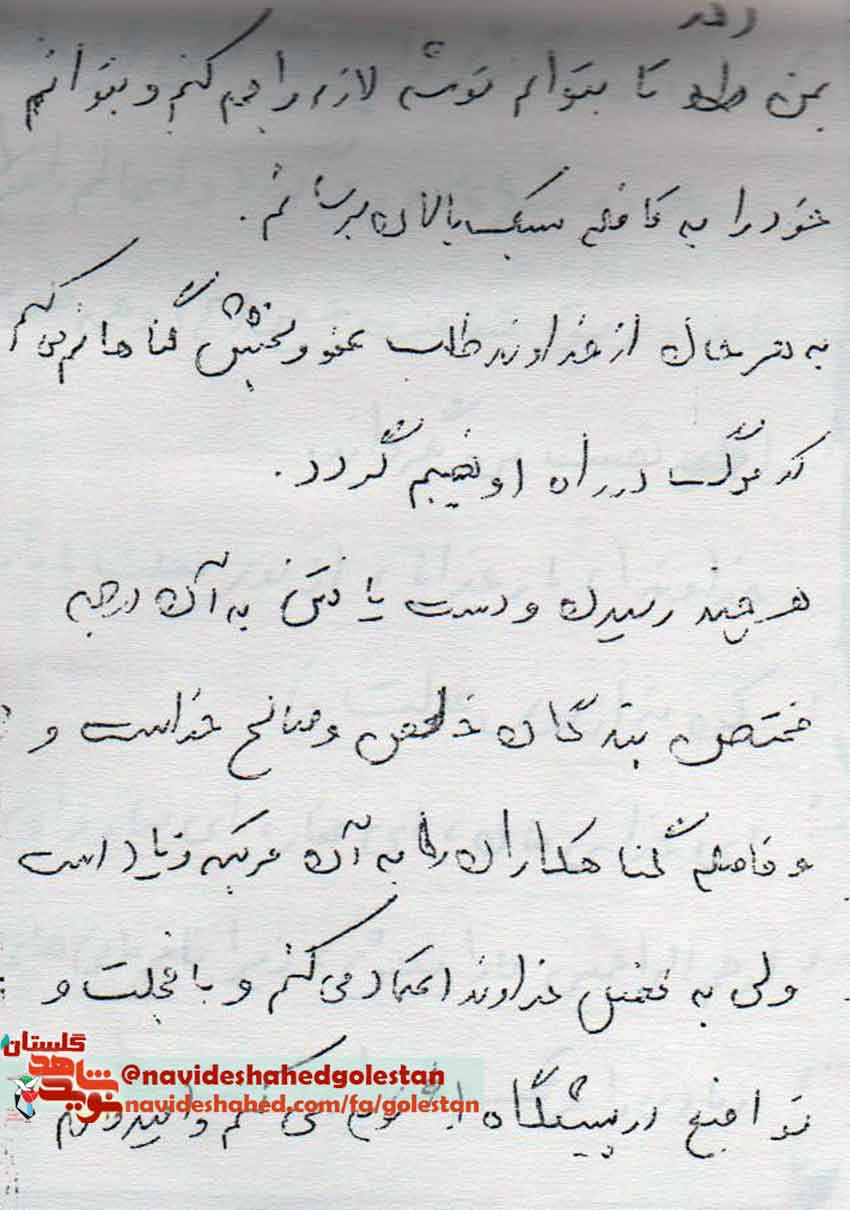 بمن دهد تا بتوانم توشه لازم را جمع کنم و بتوانم
خود را به قافله سبکبالان برسانم.
به هر حال از خداوند طلب عفو و بخشش گناهانم می کنم
که مرگ در راه او نصیبم گردد.
هر چند رسیدن و دست یافتن به آن درجه
مختص بندگان خالص و صالح خداست و
و فاصله گناهکاران را به آن مرتبه زیاد است
ولی به فضل خداوند اعتماد می کنم و با خجلت و
تواضع در پیشگاه او می کنم و امیدوارم
گلستان
نوید شاهد
@navideshahedgolestan
navideshahed.com/fa/golestan